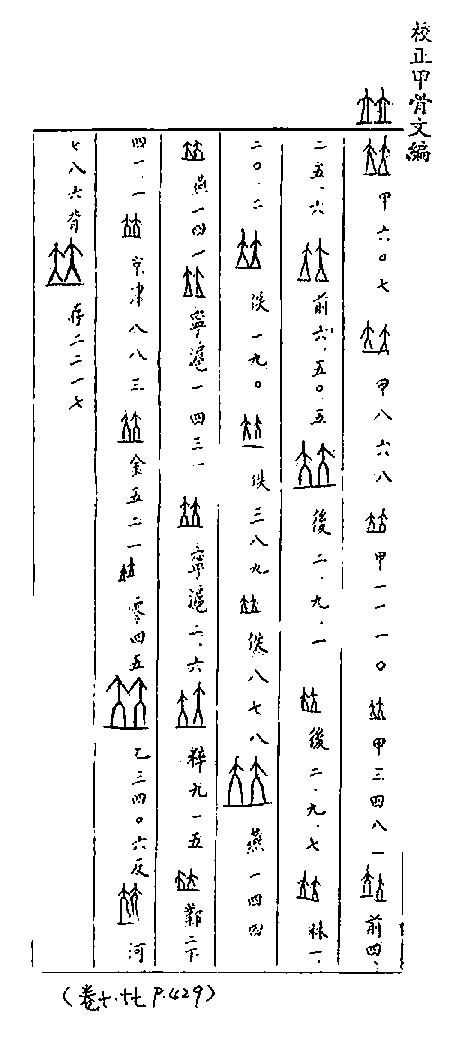 校正甲骨文編
甲六〇七 甲八六八 甲一一一〇 甲三四八一 前四、
二五、六 前六、五〇、五 後二、九、一 後二、九、七 林一、
二〇、二 佚一九〇 佚三八九 佚八七八 燕一四四
燕一四一 寧滬一四三一 寧滬二、六 粹九一五 鄴二下
四一、一 京津八八三 金五二一 零四五 乙三四〇六反 河
七八六背 存二二一七
(卷十.十七 P.429)